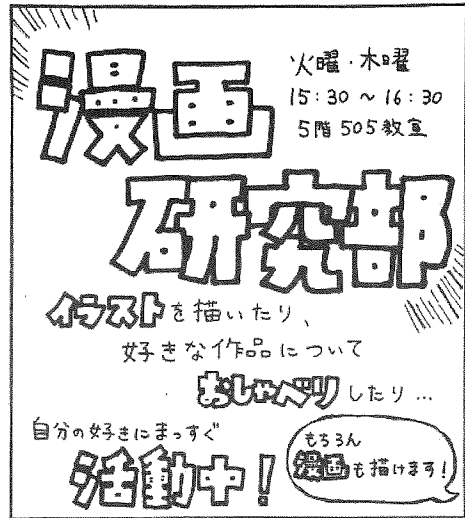 漫画
火曜・木曜
15:30〜16:30
5階505教室
研究部
イラストを描いたり、
好きな作品について
おしゃべりしたり…
自分の好きにまっすぐ
活動中!
もちろん
漫画も描けます!